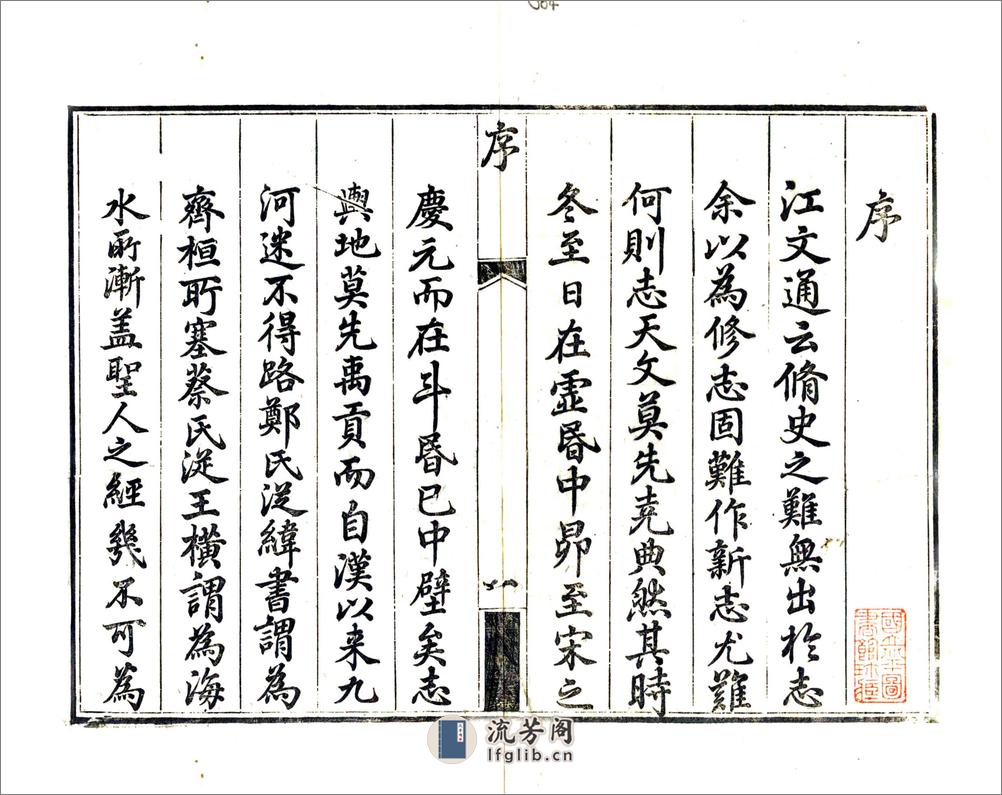 序
江文通云脩史之難無出於志
余以為修志固難作新志尤難
何則志天文莫先堯典然其時
冬至日在虛昬中昴至宋之
序
一
慶元而在斗昬已中壁矣志
輿地莫先禹貢而自漢以来九
河迷不得路鄭氏從緯書謂為
齊桓所塞蔡氏從王橫謂為海
水所漸盖聖人之經幾不可為
流芳阁
lfglib.cn